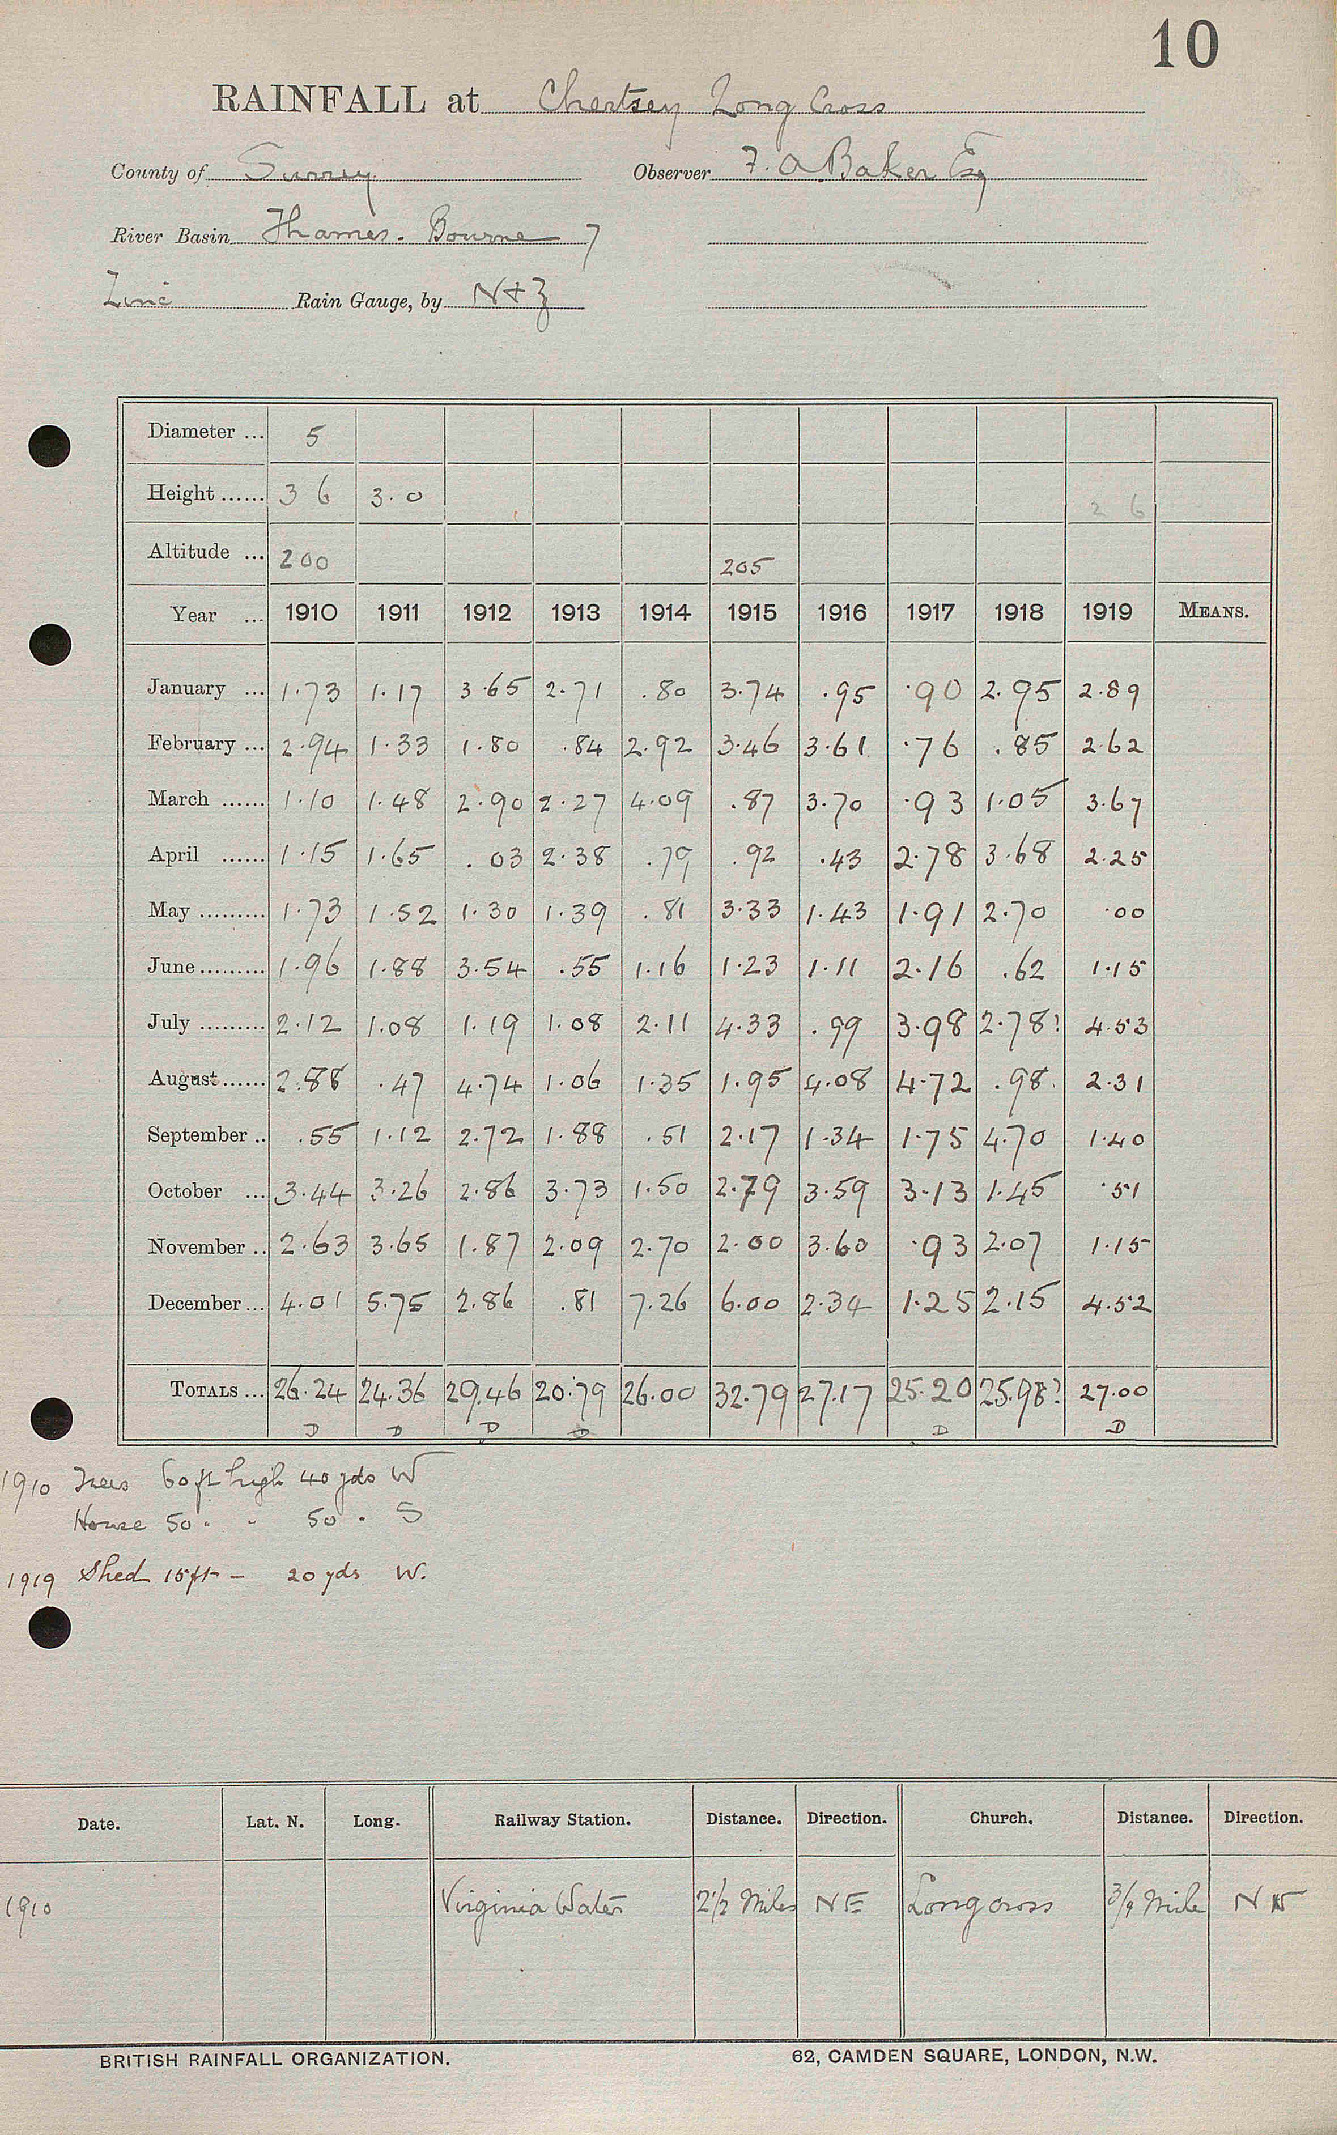 10
RAINFALL at Chertsey Long Cross
County of Surrey Observer F. A Baker Esq
River Basin Thames. Bourne 7
Zinc Rain Gauge, by N + Z
Diameter ... 5
Height ...... 3 6 3.0 2 6
Altitude ... 200 205
Year ... 1910 1911 1912 1913 1914 1915 1916 1917 1918 1919 MEANS.
January ... 1.73 1.17 3.65 2.71 .80 3.74 .95 .90 2.95 2.89
February ... 2.94 1.33 1.80 .84 2.92 3.46 3.61 .76 .85 2.62
March ...... 1.10 1.48 2.90 2.27 4.09 .87 3.70 .93 1.05 3.67
April ...... 1.15 1.65 .03 2.38 .79 .92 .43 2.78 3.68 2.25
May ......... 1.73 1.52 1.30 1.39 .81 3.33 1.43 1.91 2.70 .00
June ......... 1.96 1.88 3.54 .55 1.16 1.23 1.11 2.16 .62 1.15
July ......... 2.12 1.08 1.19 1.08 2.11 4.33 .99 3.98 2.78? 4.53
August ...... 2.88 .47 4.74 1.06 1.35 1.95 4.08 4.72 .98 2.31
September .. .55 1.12 2.72 1.88 .51 2.17 1.34 1.75 4.70 1.40
October ... 3.44 3.26 2.86 3.73 1.50 2.79 3.59 3.13 1.45 .51
November .. 2.63 3.65 1.87 2.09 2.70 2.00 3.60 .93 2.07 1.15
December ... 4.01 5.75 2.86 .81 7.26 6.00 2.34 1.25 2.15 4.52
TOTALS ... 26.24 24.36 29.46 20.79 26.00 32.79 27.17 25.20 25.98? 27.00
D D D D D D
1910 Trees 60 ft high 40 yds W
House 50 " " 50 " S
1919 Shed 15 ft - 20 yds W.
Date. Lat. N. Long. Railway Station. Distance. Direction. Church. Distance. Direction.
1910 Virginia Water 2 1/2 Miles NE Longcross Mile N
BRITISH RAINFALL ORGANIZATION. 62, CAMDEN SQUARE, LONDON, N.W.